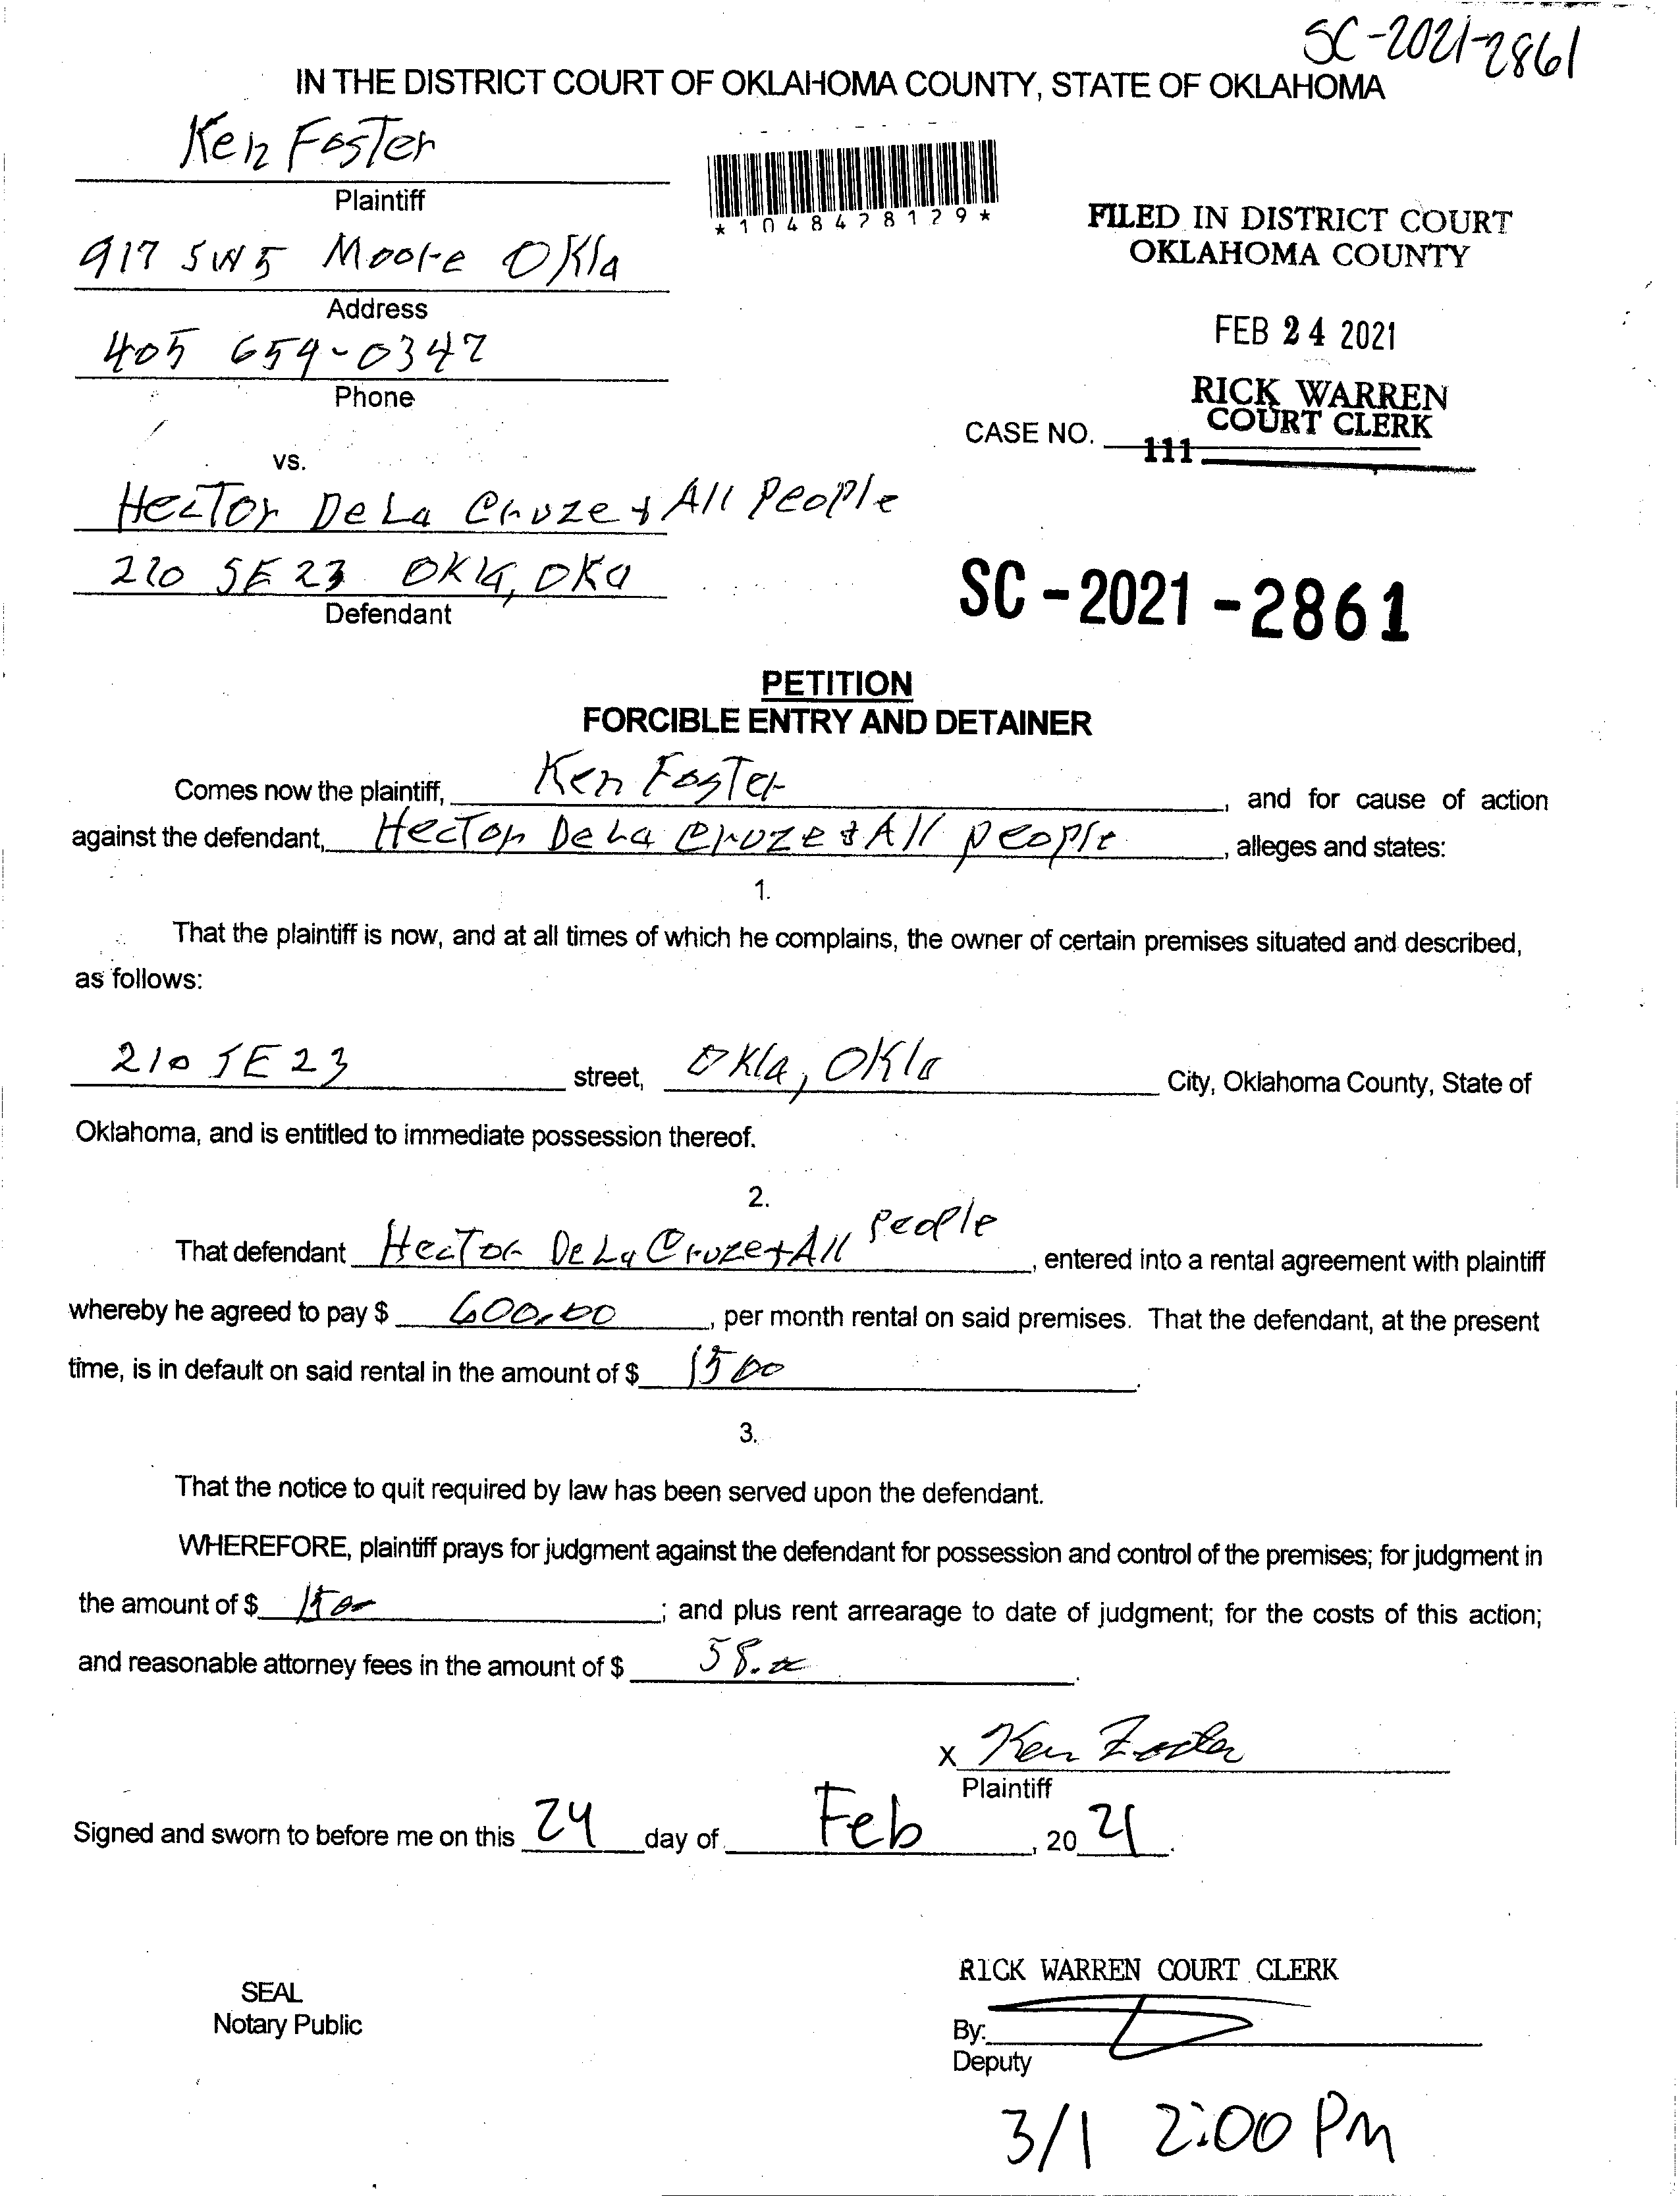 SC-2021-2861
IN THE DISTRICT COURT OF OKLAHOMA COUNTY, STATE OF OKLAHOMA
Ken Foster
Plaintiff
*1048428129*
917 SW 5 Moore Okla
Address
405 659-0347
Phone
FILED IN DISTRICT COURT
OKLAHOMA COUNTY
FEB 24 2021
RICK WARREN
COURT CLERK
CASE NO.
111
vs.
Hector De La Cruze & All People
210 SE 23 Okla, Oka
Defendant
SC-2021-2861
PETITION
FORCIBLE ENTRY AND DETAINER
Comes now the plaintiff, Ken Foster, and for cause of action
against the defendant, Hector De La Cruze & All people, alleges and states:
1.
That the plaintiff is now, and at all times of which he complains, the owner of certain premises situated and described,
as follows:
210 SE 23 street, Okla, Okla City, Oklahoma County, State of
Oklahoma, and is entitled to immediate possession thereof.
2.
That defendant Hector De La Cruze & All People, entered into a rental agreement with plaintiff
whereby he agreed to pay $ 600.00, per month rental on said premises. That the defendant, at the present
time, is in default on said rental in the amount of $ 1500.
3.
That the notice to quit required by law has been served upon the defendant.
WHEREFORE, plaintiff prays for judgment against the defendant for possession and control of the premises; for judgment in
the amount of $ 1500; and plus rent arrearage to date of judgment; for the costs of this action;
and reasonable attorney fees in the amount of $ 58.00.
x Ken Foster
Plaintiff
Signed and sworn to before me on this 24 day of Feb, 2021.
SEAL
Notary Public
RICK WARREN COURT CLERK
By:
Deputy
3/1 2:00 PM